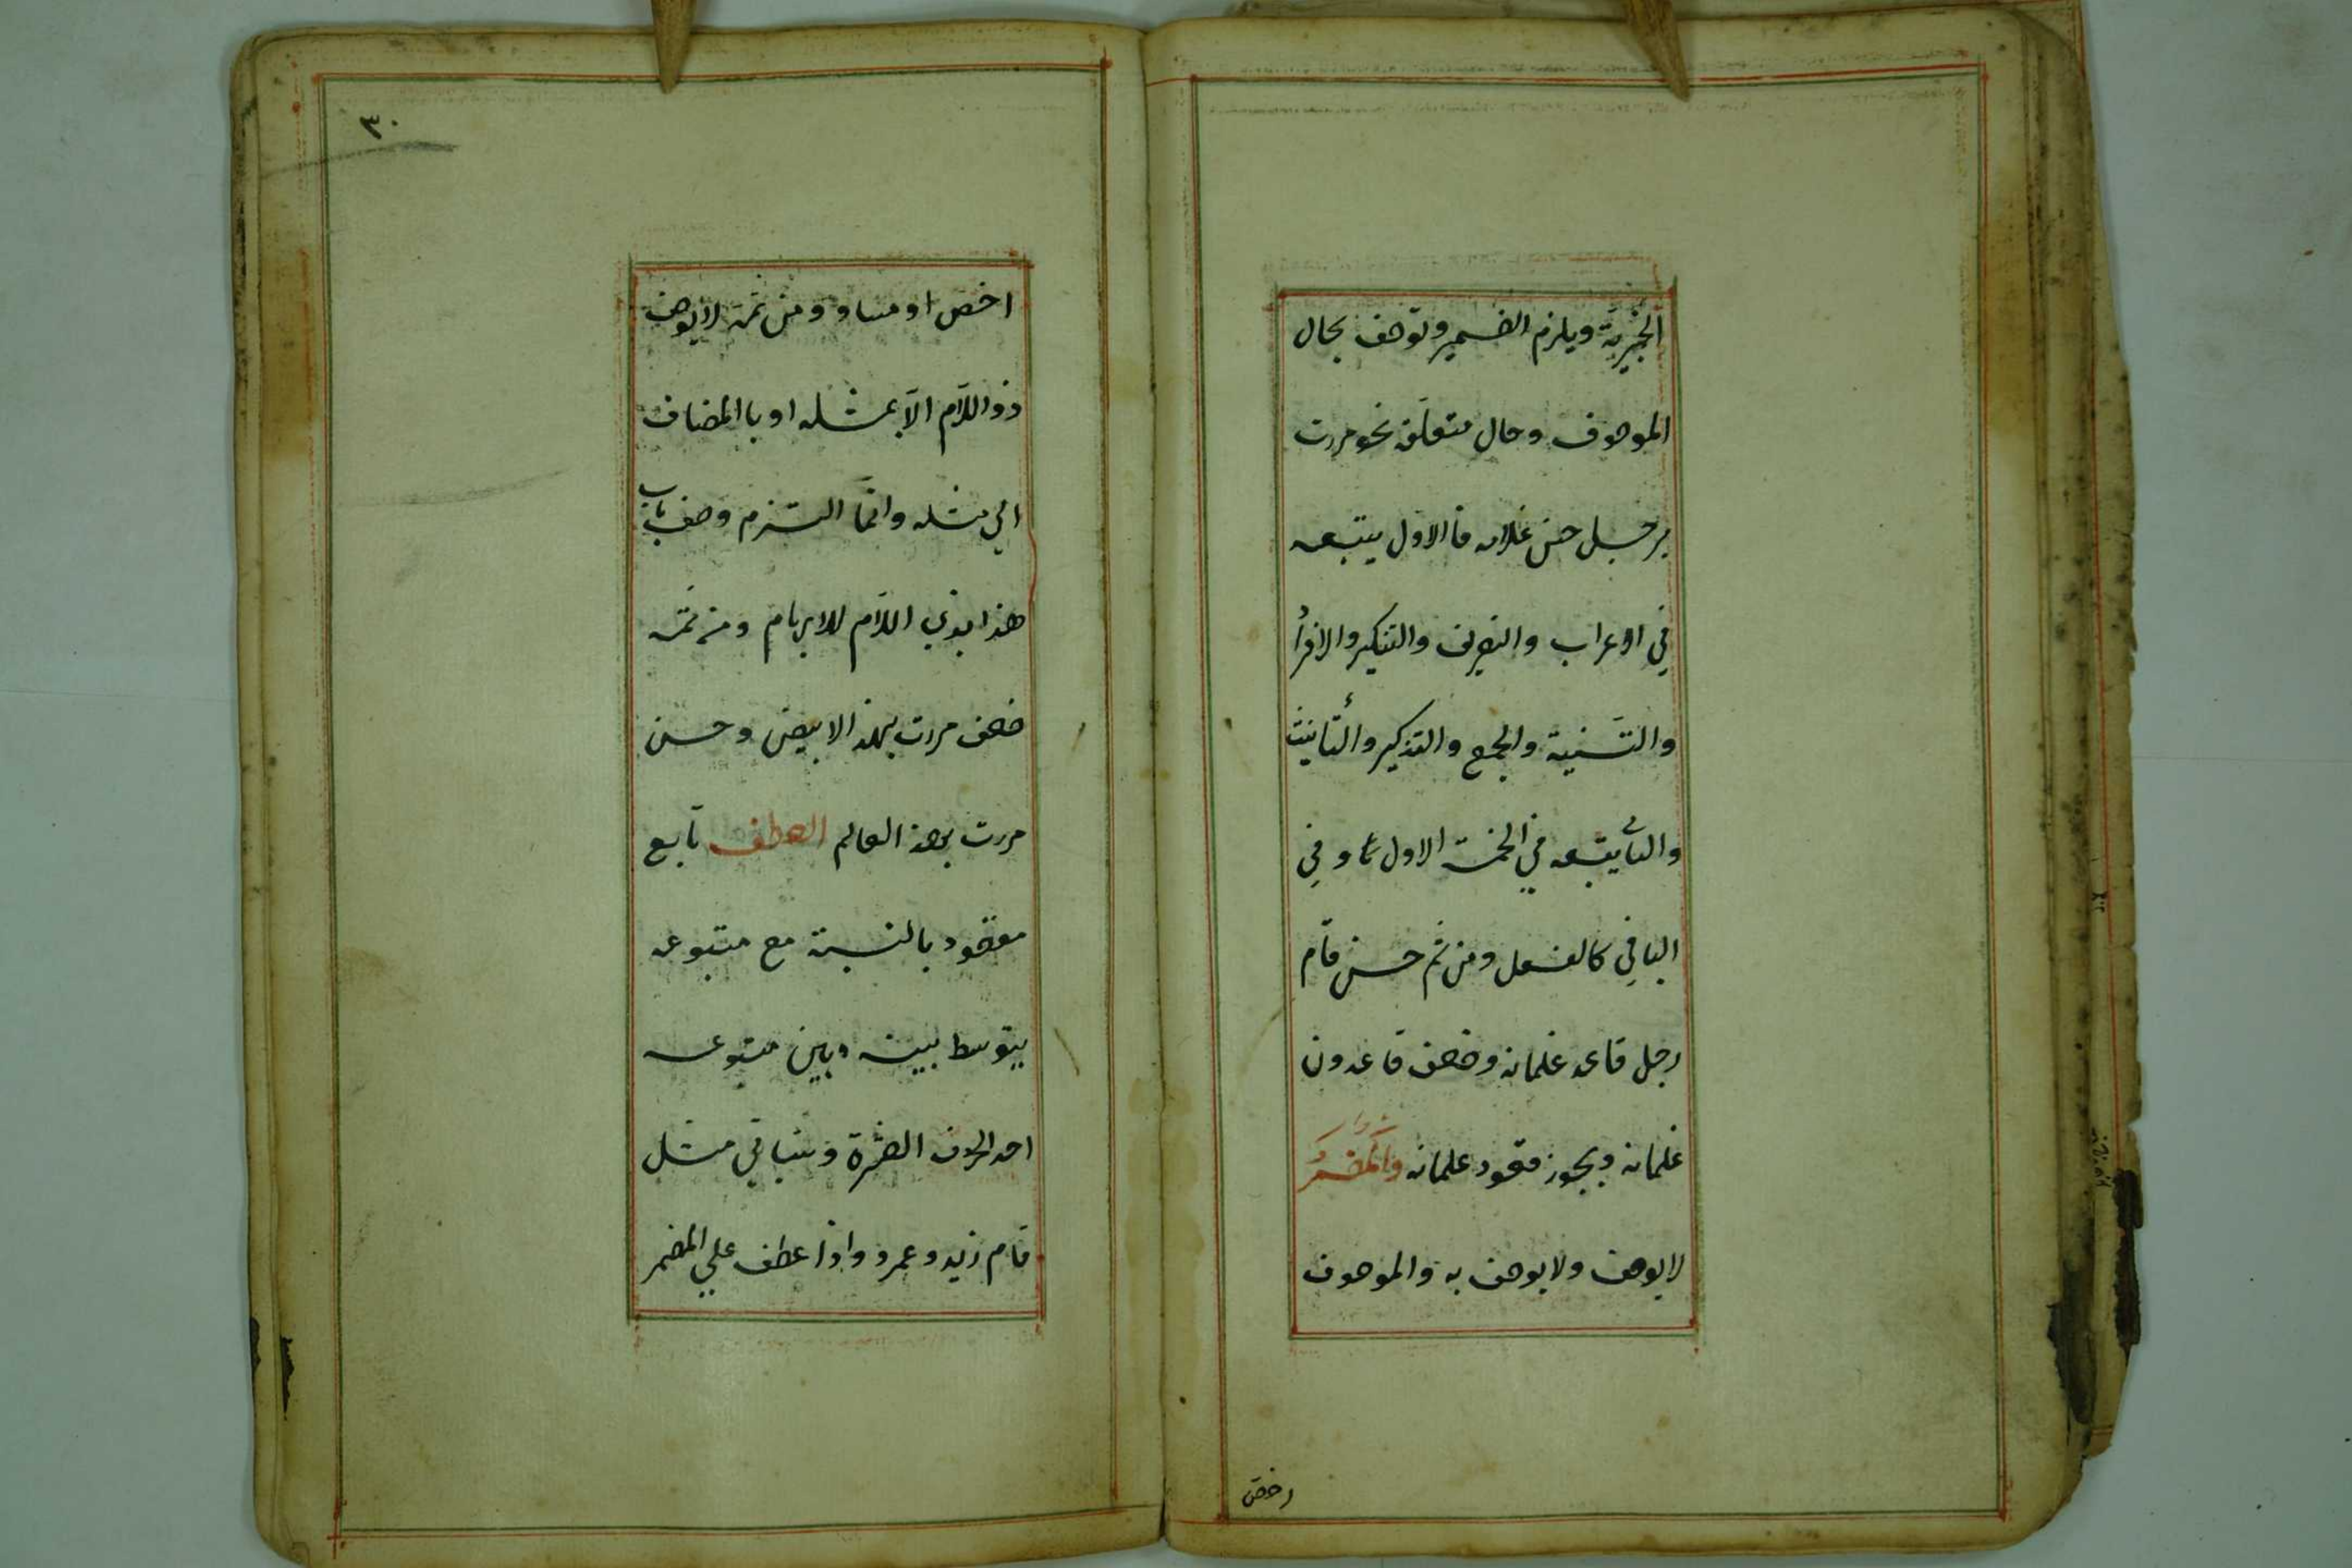 الخبرية ويلزم الضمير وتوصف بحال
الموصوف وحال متعلقه نحو مررت
برجل حسن غلامه فالاول يتبعه
في الاعراب والتعريف والتنكير والافراد
والتثنية والجمع والتذكير والتأنيث
والثاني يتبعه في الخمسة الاول وفي
الباقي كالفعل ومن ثم حسن قام
رجل قاعد غلمانه وضعف قاعدون
غلمانه ويجوز قعود غلمانه والمضمر
لايوصف ولا يوصف به والموصوف
اخص
٣٠
اخص او مساو ومن ثمه لايوصف
ذو اللام الا بمثله او باالمضاف
الي مثله وانما التزم وصف باب
هذا بذي اللام للابهام ومن ثمه
ضعف مررت بهذا الابيض وحسن
مررت بهذ العالم العطف تابع
مقصود بالنسبة مع متبوعه
يتوسط بينه وبين متبوعه
احد الحروف العشرة وسياتي مثل
قام زيد وعمرو واذا عطف علي المضمر